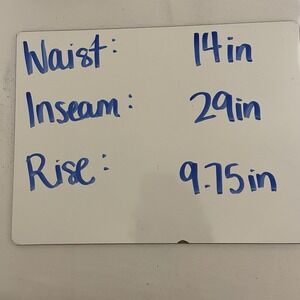 Waist: 14in
Inseam: 29in
Rise: 9.75in